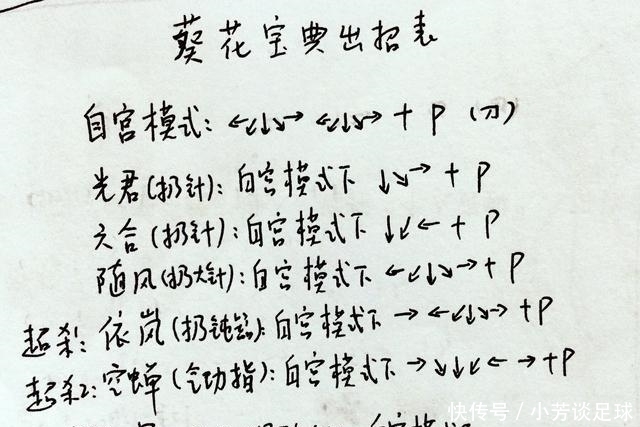 葵花宝典出招表
自宫模式: ←↙↓↘→ ←↙↓↘→ + P (刀)
光君(扔针): 自宫模式下 ↓↘→ + P
六合(扔针): 自宫模式下 ↓↙← + P
随风(扔大针): 自宫模式下 ←↙↓↘→ + P
超杀: 依岚(扔钝): 自宫模式下 → ←↙↓↘→ + P
超杀2: 空蝉(指): 自宫模式下 →↘↓↙← → + P
自宫模
快传号 / 小芳谈足球